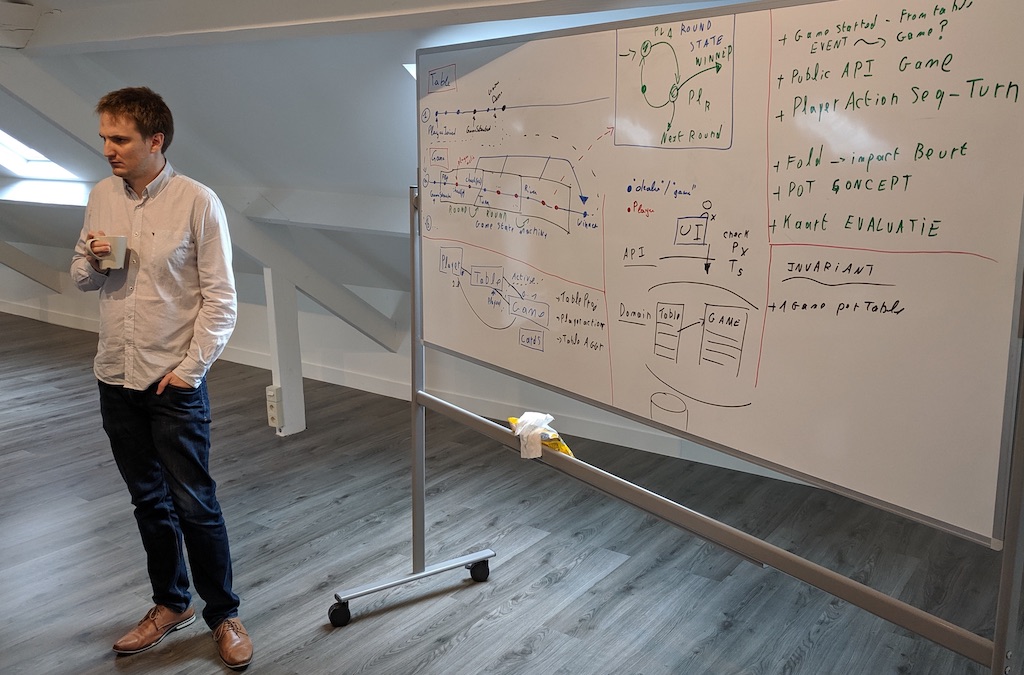 Table
Game
ROUND
ROUND
Game State Machine
Winner
River
Player
Table
Game
Cards
→ Player action
→ Table Aggr
PLA ROUND
STATE
WINNER
PLR
Next Round
"dealer"/"game"
Player
UI
X
API
check
PX
TS
Domain
Table
GAME
+ Game started - From table
EVENT Game?
+ Public API Game
+ Player Action Seq-Turn
+ Fold → impact Beurt
+ POT CONCEPT
+ Kaart EVALUATIE
INVARIANT
+ 1 Game per Table